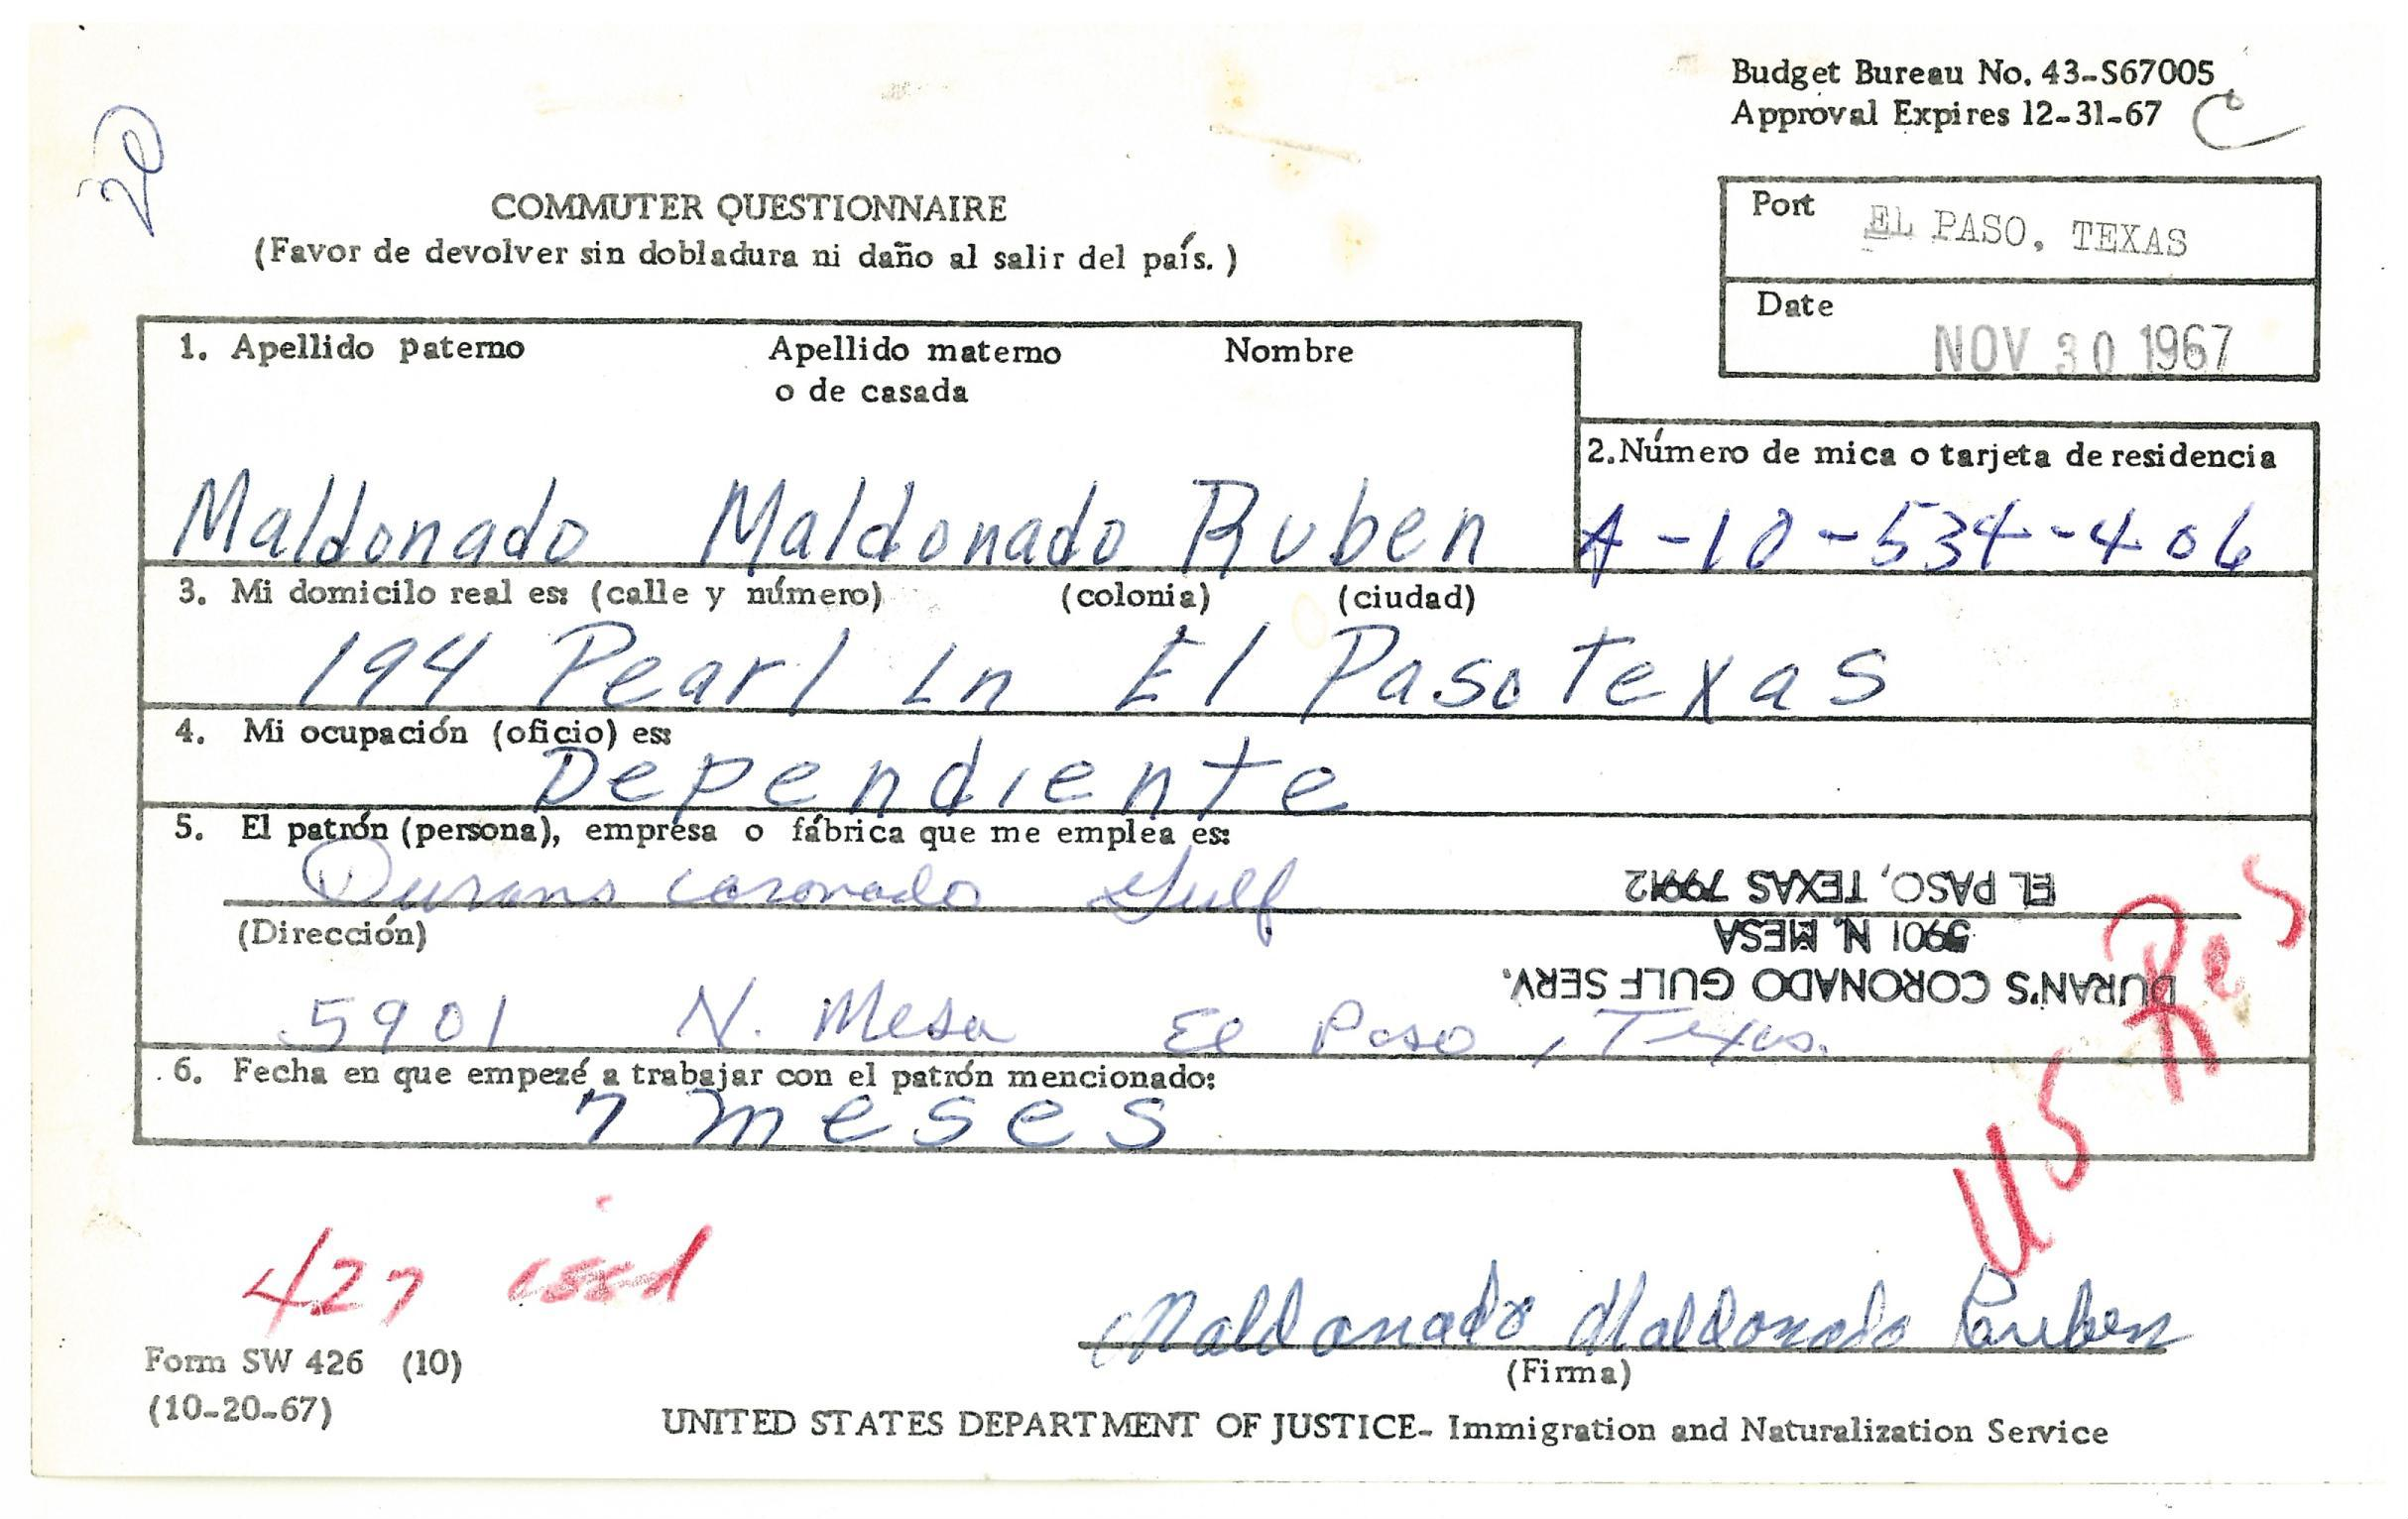 Budget Bureau No. 43-S67005
Approval Expires 12-31-67
C
20
COMMUTER QUESTIONNAIRE
(Favor de devolver sin dobladura ni daño al salir del país. )
Port EL PASO, TEXAS
Date
NOV 30 1967
1. Apellido paterno Apellido materno Nombre
o de casada
Maldonado Maldonado Ruben
2.Número de mica o tarjeta de residencia
A-10-534-406
3. Mi domicilo real es: (calle y número) (colonia) (ciudad)
194 Pearl Ln El Paso Texas
4. Mi ocupación (oficio) es:
Dependiente
5. El patrón (persona), empresa o fábrica que me emplea es:
Durans Coronado Gulf
(Dirección)
5901 N. Mesa El Paso, Texas.
DURAN'S CORONADO GULF SERV.
5901 N. MESA
EL PASO, TEXAS 79912
US Res
6. Fecha en que empezé a trabajar con el patrón mencionado:
7 meses
427 issd
Maldonado Maldonado Ruben
(Firma)
Form SW 426 (10)
(10-20-67)
UNITED STATES DEPARTMENT OF JUSTICE- Immigration and Naturalization Service